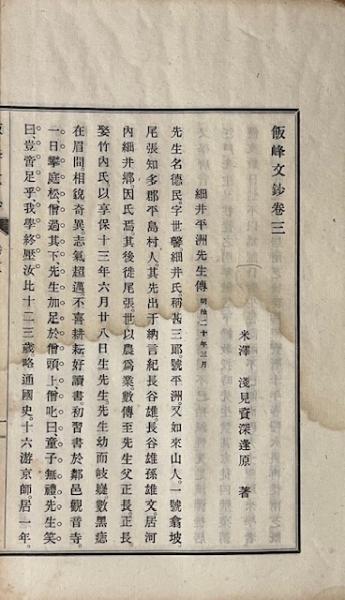 飯峰文鈔卷三
米澤 淺見資深逢原 著
細井平洲先生傳 明治二十年三月
先生名德民字世馨細井氏稱甚三郎號平洲又如來山人一號翕坡
尾張知多郡平島村人其先出于納言紀長谷雄長谷雄孫雄文居河
內細井鄉因氏焉其後徙尾張世以農爲業數傳至先生父正長正長
娶竹內氏以享保十三年六月廿八日生先生先生幼而岐嶷數黑痣
在眉間相貌奇異志氣超邁不喜耕耘好讀書初習書於鄰邑觀音寺
一日攀庭松僧過其下先生加足於僧頭上僧叱曰童子無禮先生笑
曰豈啻足乎我學終壓汝比十二三歲略通國史十六游京師居一年